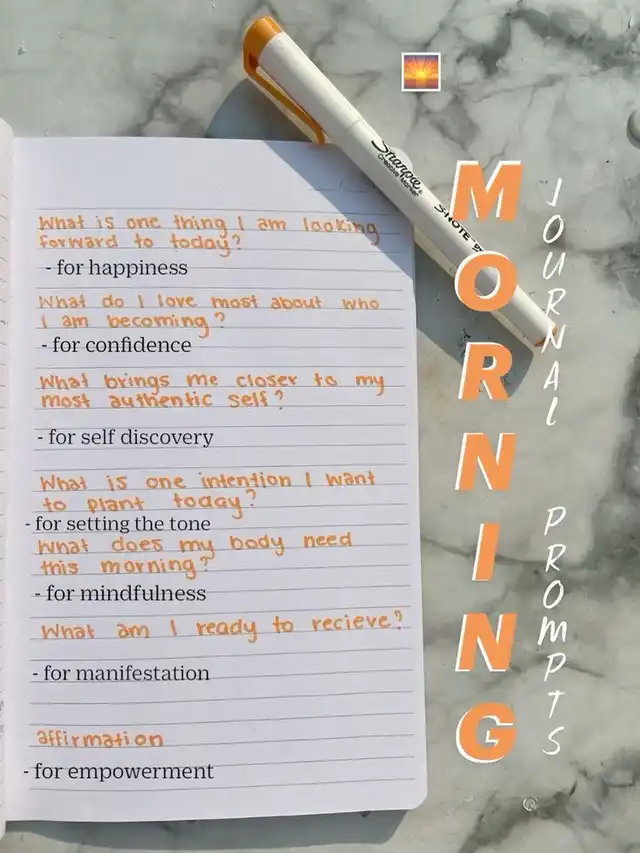 What is one thing I am looking
forward to today?
- for happiness
What do I love most about who
I am becoming?
- for confidence
What brings me closer to my
most authentic self?
- for self discovery
What is one intention I want
to plant today?
- for setting the tone
What does my body need
this morning?
- for mindfulness
What am I ready to recieve?
- for manifestation
affirmation
- for empowerment
Sharpie
Creative Marker
S·NOTE
MORNING
JOURNAL PROMPTS